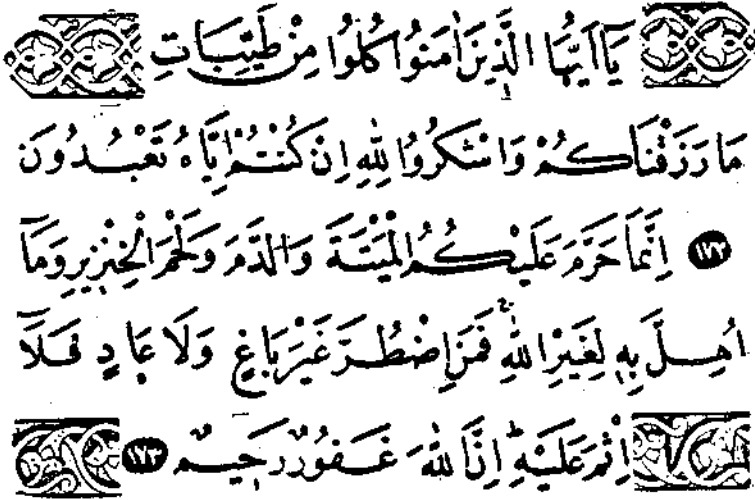 يَٓا اَيُّهَا الَّذ۪ينَ اٰمَنُوا كُلُوا مِنْ طَيِّبَاتِ
مَا رَزَقْنَاكُمْ وَاشْكُرُوا لِلّٰهِ اِنْ كُنْتُمْ اِيَّاهُ تَعْبُدُونَ
﴿١٧٢﴾ اِنَّمَا حَرَّمَ عَلَيْكُمُ الْمَيْتَةَ وَالدَّمَ وَلَحْمَ الْخِنْز۪يرِ وَمَٓا
اُهِلَّ بِه۪ لِغَيْرِ اللّٰهِۚ فَمَنِ اضْطُرَّ غَيْرَ بَاغٍ وَلَا عَادٍ فَلَٓا
اِثْمَ عَلَيْهِۜ اِنَّ اللّٰهَ غَفُورٌ رَح۪يمٌ ﴿١٧٣﴾